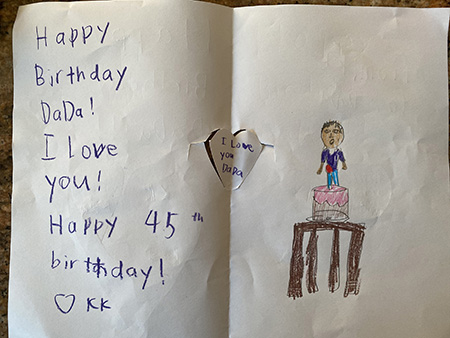 Happy
Birthday
DaDa!
I Love
you!
Happy 45th
birthday!
♡ KK
I Love
you
DaDa